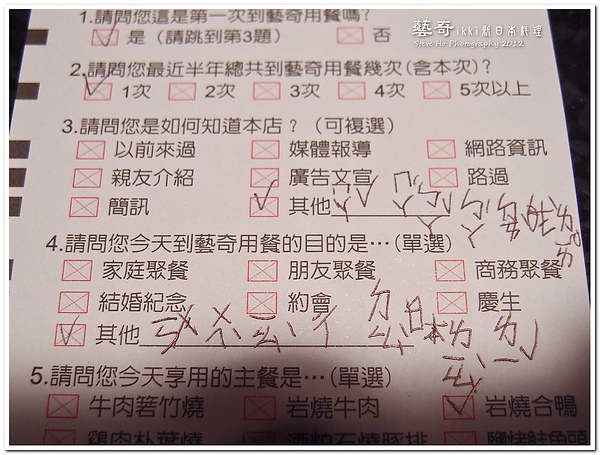 藝奇ikki新日本料理
Steve Ho Photography 2012
1.請問您這是第一次到藝奇用餐嗎?
是(請跳到第3題) 否
2.請問您最近半年總共到藝奇用餐幾次(含本次)?
1次 2次 3次 4次 5次以上
3.請問您是如何知道本店?(可複選)
以前來過 媒體報導 網路資訊
親友介紹 廣告文宣 路過
簡訊 其他
4.請問您今天到藝奇用餐的目的是…(單選)
家庭聚餐 朋友聚餐 商務聚餐
結婚紀念 約會 慶生
其他
5.請問您今天享用的主餐是…(單選)
牛肉箬竹燒 岩燒牛肉 岩燒合鴨